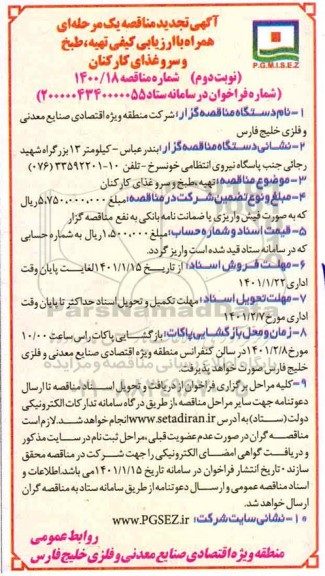 آگهی تجدید مناقصه یک مرحله‌ای
همراه با ارزیابی کیفی تهیه، طبخ
و سرو غذای کارکنان
P.G.M.I.S.E.Z
(نوبت دوم) شماره مناقصه ۱۴۰۰/۱۸
(شماره فراخوان در سامانه ستاد ۲۰۰۰۰۰۴۳۴۰۰۰۰۰۵۵)
۱- نام دستگاه مناقصه گزار: شرکت منطقه ویژه اقتصادی صنایع معدنی
و فلزی خلیج فارس
۲- نشانی دستگاه مناقصه گزار: بندر عباس - کیلومتر ۱۳ بزرگراه شهید
رجائی جنب پاسگاه نیروی انتظامی خونسرخ - تلفن ۱۰-۳۳۵۹۲۲۰۱ (۰۷۶)
۳- موضوع مناقصه: تهیه، طبخ و سرو غذای کارکنان
۴- مبلغ و نوع تضمین شرکت در مناقصه: مبلغ ۵,۷۵۰,۰۰۰,۰۰۰ ریال
که به صورت فیش واریزی یا ضمانت نامه بانکی به نفع مناقصه گزار
۵- قیمت اسناد و شماره حساب: مبلغ ۱,۵۰۰,۰۰۰ ریال به شماره حسابی
که در سامانه ستاد قید شده است واریز گردد.
۶- مهلت فروش اسناد: از تاریخ ۱۴۰۱/۱/۱۵ لغایت پایان وقت
اداری ۱۴۰۱/۱/۲۲
۷- مهلت تحویل اسناد: مهلت تکمیل و تحویل اسناد حداکثر تا پایان وقت
اداری مورخ ۱۴۰۱/۲/۷
۸- زمان و محل بازگشایی پاکات: بازگشایی پاکات راس ساعت ۱۰/۰۰
مورخ ۱۴۰۱/۲/۸ در سالن کنفرانس منطقه ویژه اقتصادی صنایع معدنی و فلزی
خلیج فارس صورت خواهد پذیرفت.
۹- کلیه مراحل برگزاری فراخوان از دریافت و تحویل اسناد مناقصه تا ارسال
دعوتنامه جهت سایر مراحل مناقصه، از طریق درگاه سامانه تدارکات الکترونیکی
دولت (ستاد) به آدرس www.setadiran.ir انجام خواهد شد. لازم است
مناقصه گران در صورت عدم عضویت قبلی، مراحل ثبت نام در سایت مذکور
و دریافت گواهی امضای الکترونیکی را جهت شرکت در مناقصه محقق
سازند. تاریخ انتشار فراخوان در سامانه تاریخ ۱۴۰۱/۱/۱۵ می باشد. اطلاعات و
اسناد مناقصه عمومی و ارسال دعوتنامه از طریق سامانه ستاد به مناقصه گران
ارسال خواهد شد.
۱۰- نشانی سایت شرکت: www.PGSEZ.ir
روابط عمومی
منطقه ویژه اقتصادی صنایع معدنی و فلزی خلیج فارس